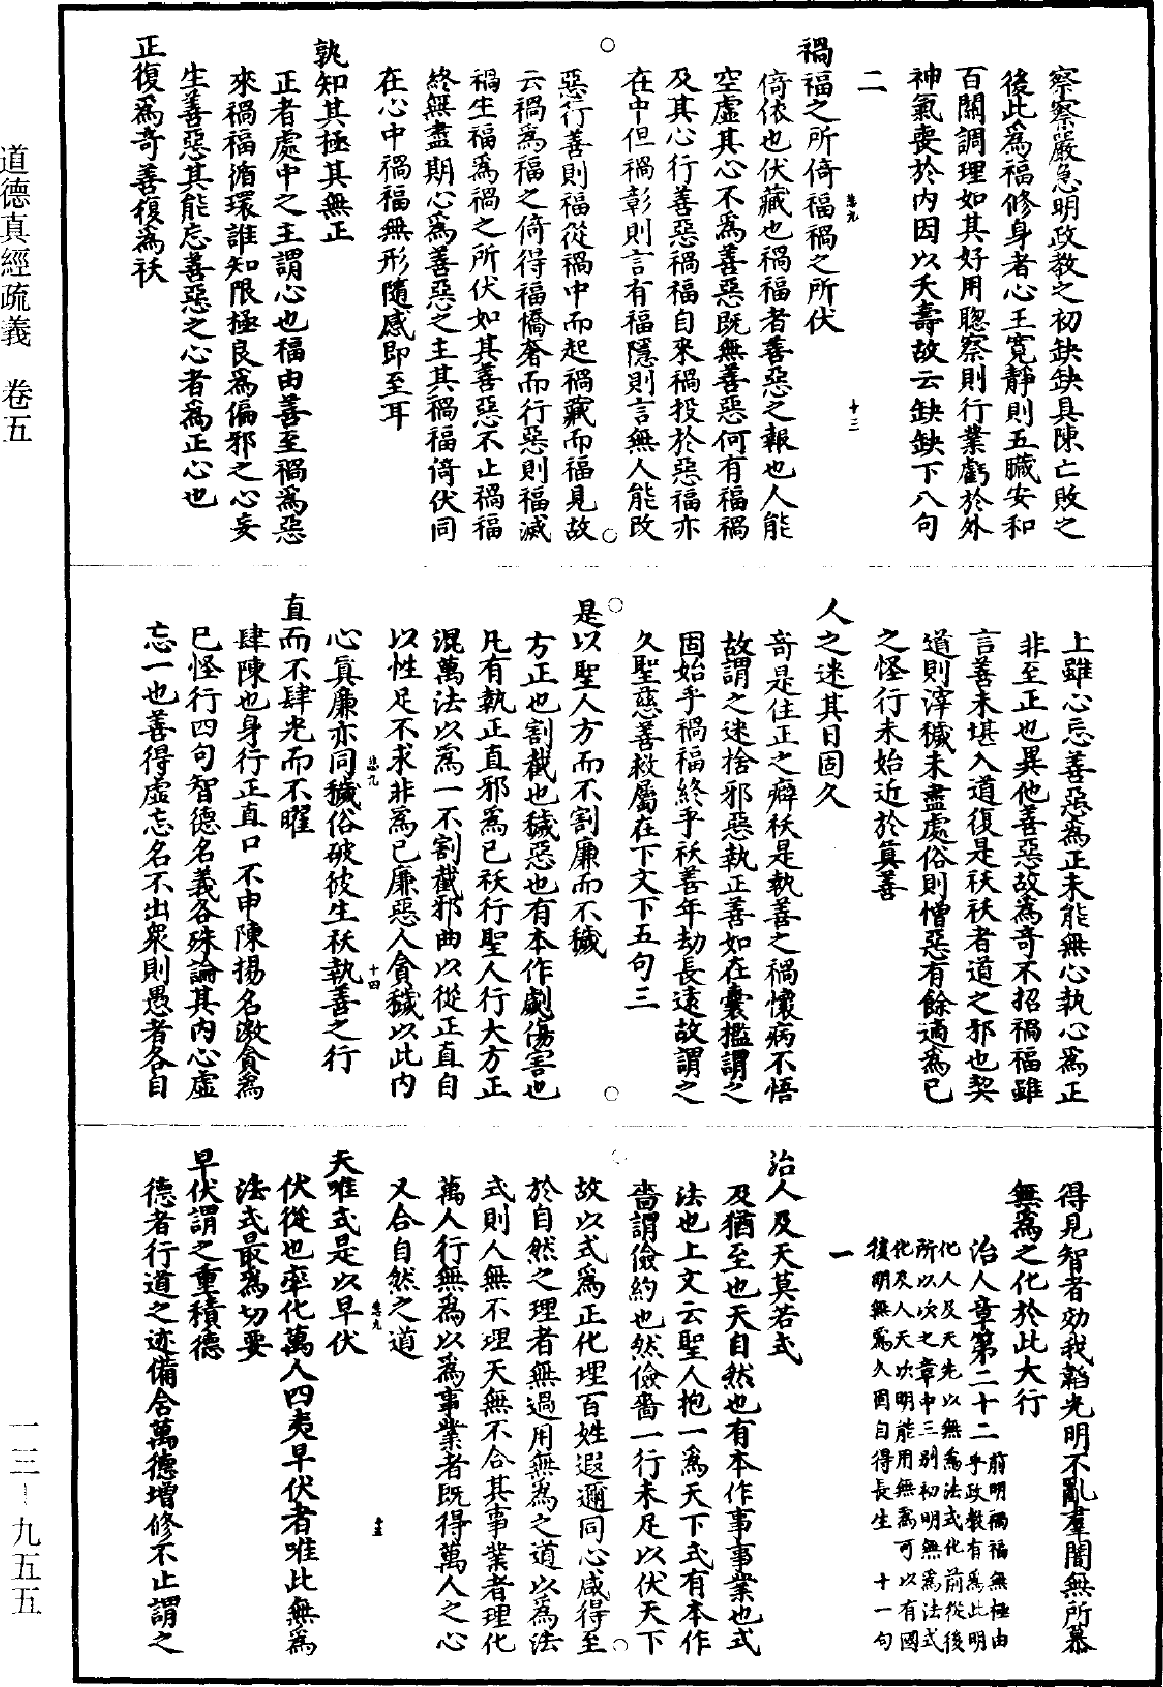 察察嚴急明政教之初缺缺具陳亡敗之
後此爲福修身者心王寬靜則五臟安和
百關調理如其好用聰察則行業虧於外
神氣喪於内因以夭壽故云缺缺下八句
二
禍福之所倚福禍之所伏
倚依也伏藏也禍福者善惡之報也人能
空虛其心不爲善惡既無善惡何有福禍
及其心行善惡禍福自來禍投於惡福亦
在中但禍彰則言有福隱則言無人能改
惡行善則福從禍中而起禍藏而福見故
云禍爲福之倚得福憍奢而行惡則福滅
禍生福爲禍之所伏如其善惡不止禍福
終無盡期心爲善惡之主其禍福倚伏同
在心中禍福無形隨感即至耳
孰知其極其無正
正者處中之主謂心也福由善至禍爲惡
來禍福循環誰知限極良爲偏邪之心妄
生善惡其能忘善惡之心者爲正心也
正復爲奇善復爲祅
上雖心忘善惡爲正未能無心執心爲正
非至正也異他善惡故爲奇不招禍福雖
言善未堪入道復是祅祅者道之邪也契
道則滓穢未盡處俗則憎惡有餘適爲已
之怪行未始近於真善
人之迷其日固久
奇是住正之癖祅是執善之禍懷病不悟
故謂之迷捨邪惡執正善如在囊檻謂之
固始乎禍福終乎祅善年劫長遠故謂之
久聖慈善救屬在下文下五句三
是以聖人方而不割廉而不穢
方正也割截也穢惡也有本作劌傷害也
凡有執正直邪爲已祅行聖人行大方正
混萬法以爲一不割截邪曲以從正直自
以性足不求非爲已廉惡人貪穢以此内
心真廉亦同穢俗破彼生祅執善之行
直而不肆光而不曜
肆陳也身行正直口不申陳揚名激貪爲
已怪行四句智德名義各殊論其内心虛
忘一也善得虛忘名不出衆則愚者各自
得見智者効我韜光明不亂羣闇無所慕
無爲之化於此大行
治人章第二十二 前明禍福無極由
乎政教有爲此明
化人及天先以無爲法式化前從後
所以次之章中三别初明無爲法式
化及人天次明能用無爲可以有國
復明無爲久固自得長生 十一句
一
治人及天莫若式
及猶至也天自然也有本作事事業也式
法也上文云聖人抱一爲天下式有本作
嗇謂儉約也然儉嗇一行未足以伏天下
故以式爲正化理百姓遐邇同心咸得至
於自然之理者無過用無爲之道以爲法
式則人無不理天無不合其事業者理化
萬人行無爲以爲事業者既得萬人之心
又合自然之道
夫唯式是以早伏
伏從也率化萬人四夷早伏者唯此無爲
法式最爲切要
早伏謂之重積德
德者行道之迹備含萬德增修不止謂之
道德真經疏義 卷五
一三—九五五